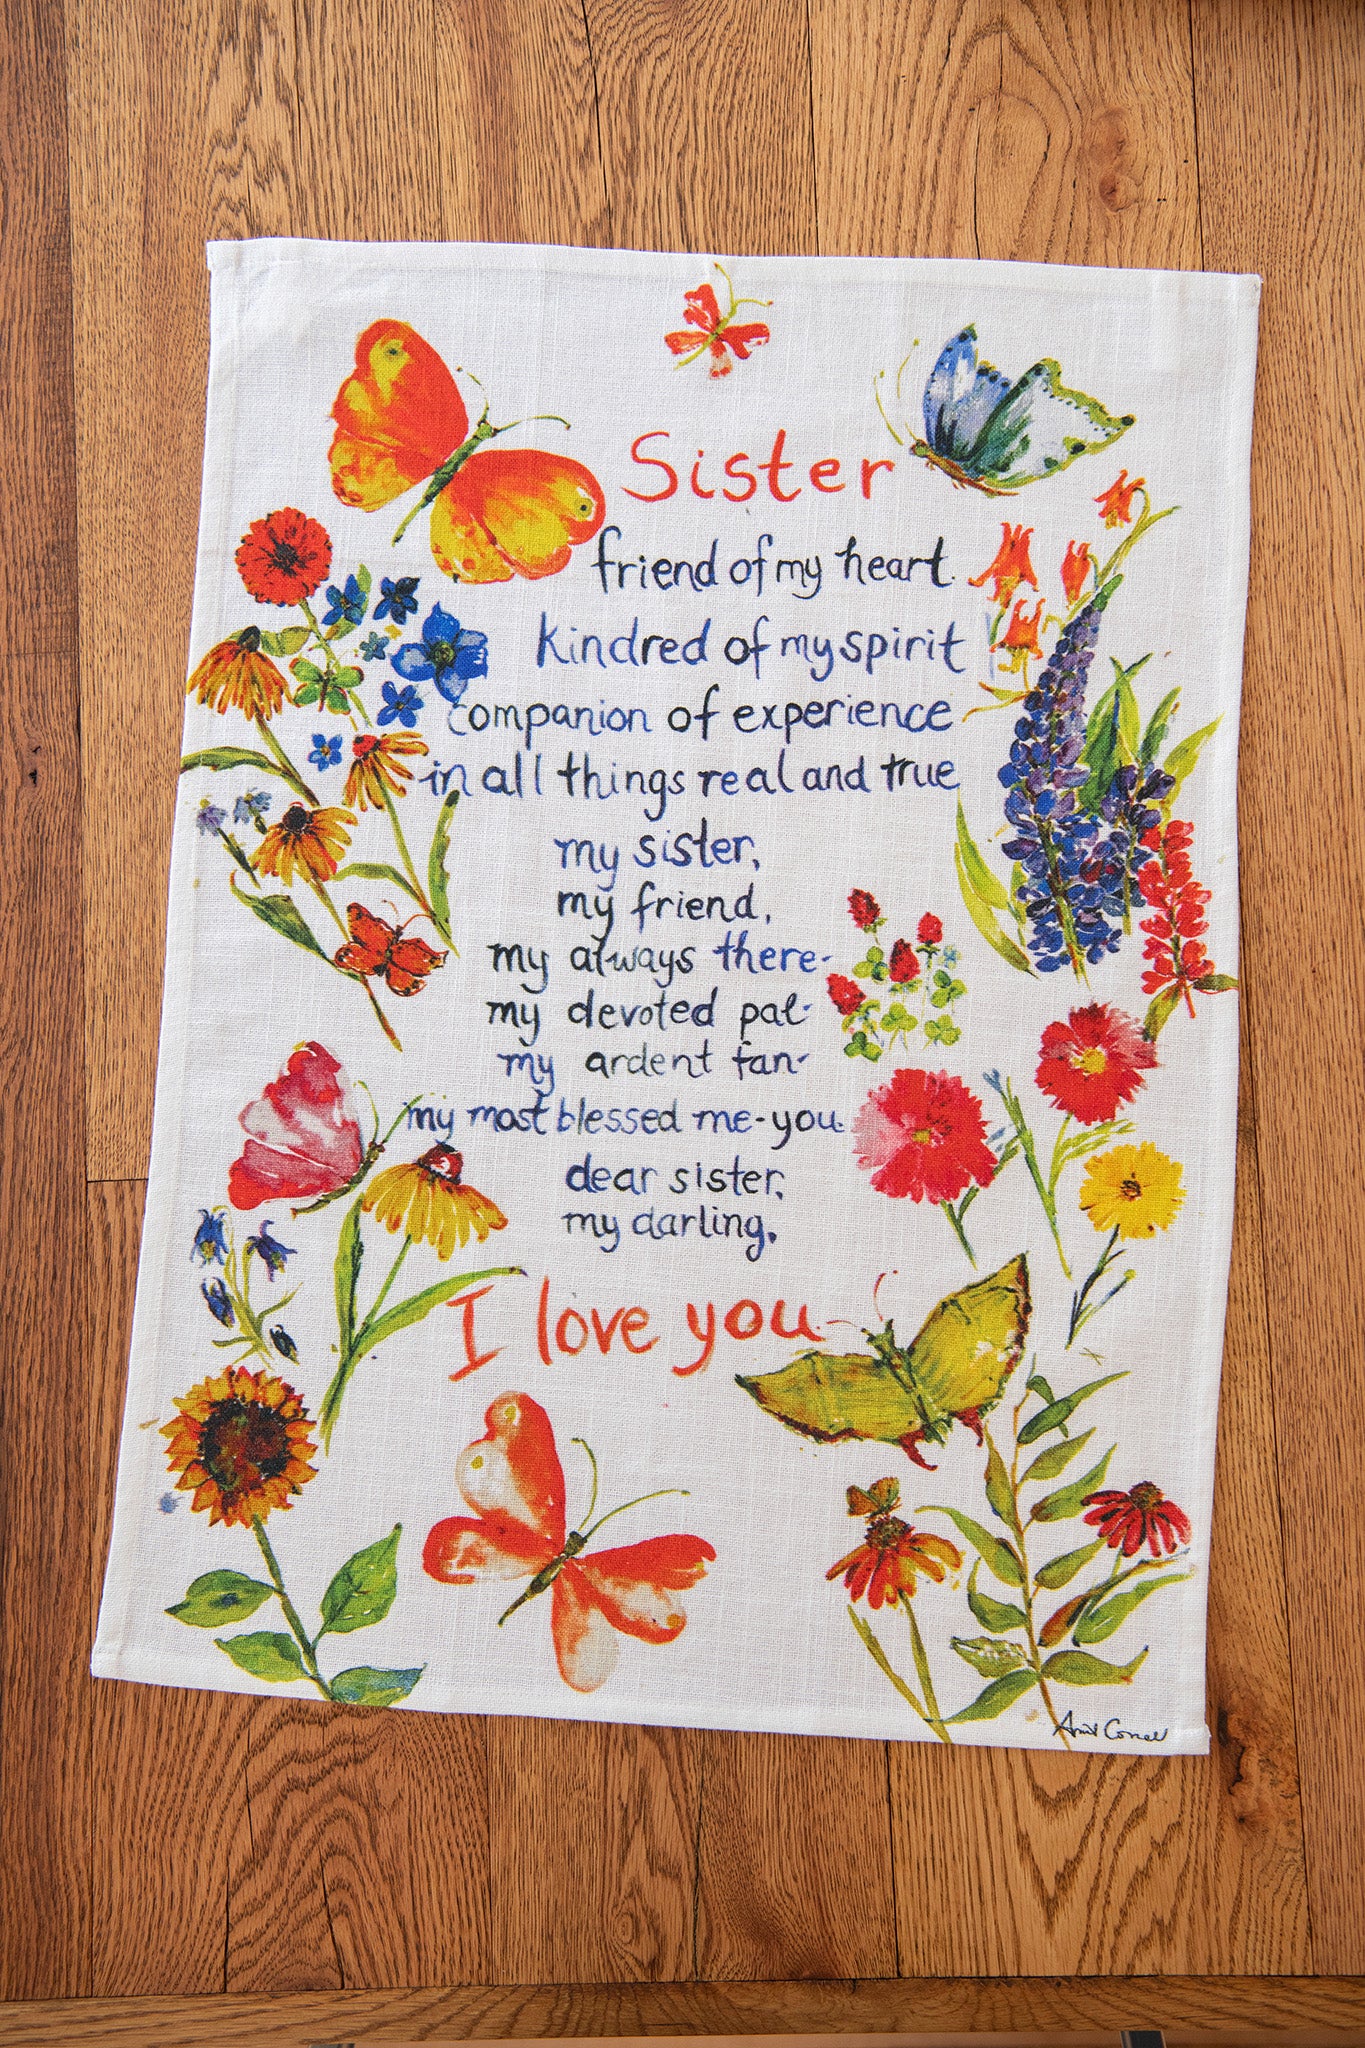 Sister
friend of my heart.
kindred of my spirit
companion of experience
in all things real and true
my sister,
my friend,
my always there-
my devoted pal-
my ardent fan-
my most blessed me-you.
dear sister,
my darling,
I love you